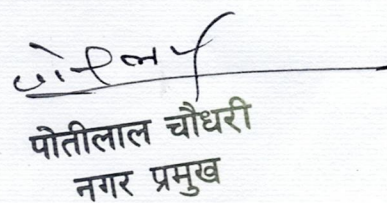 पोतीलाल चौधरी
नगर प्रमुख